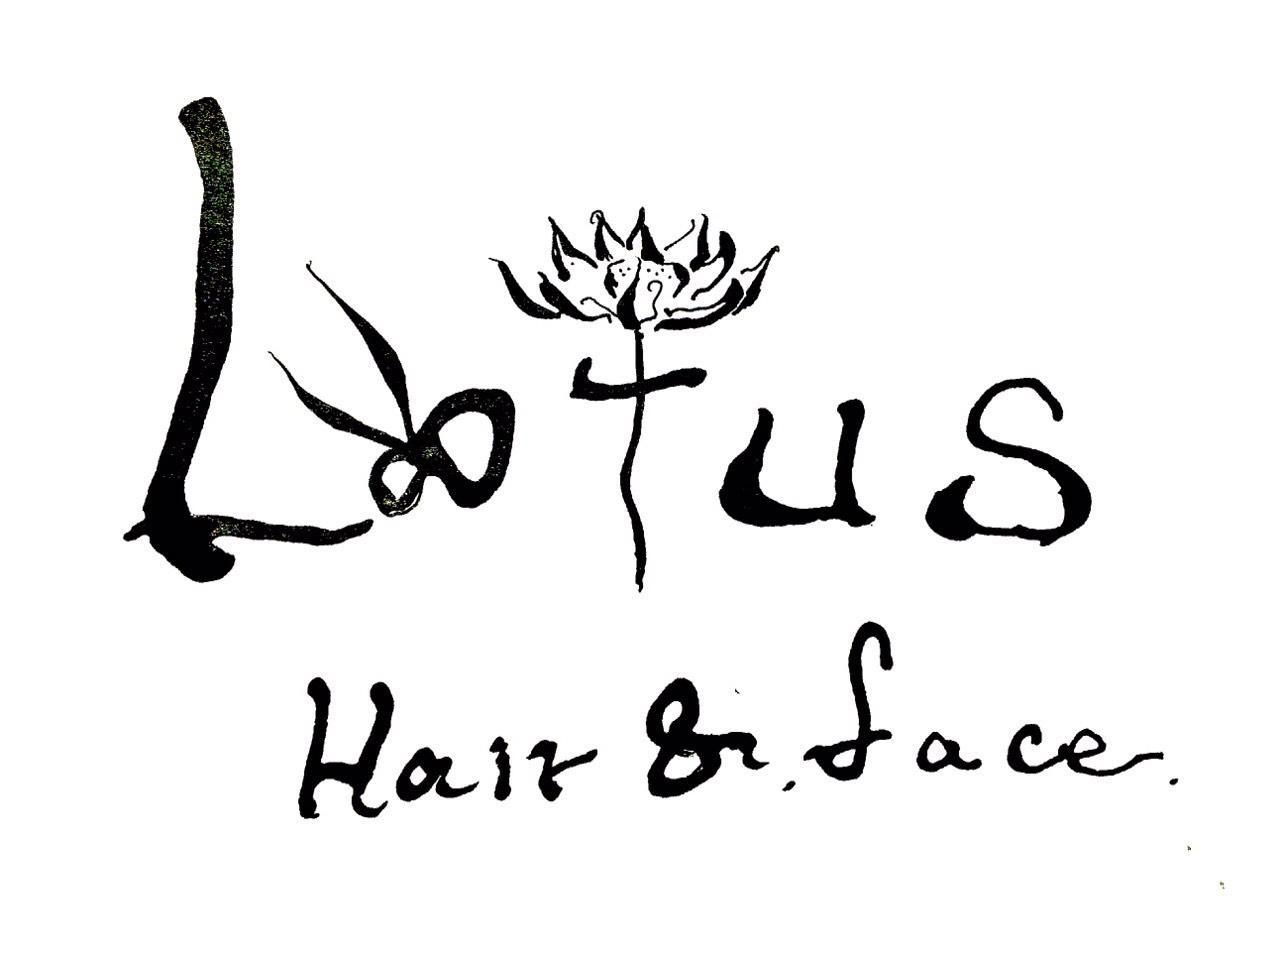 Lotus
Hair & face.